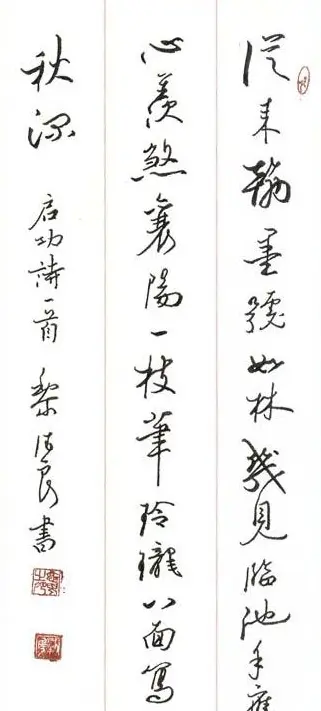 從來翰墨號如林幾見臨池手應
心羨煞襄陽一枝筆玲瓏八面寫
秋深
启功詩一首 黎 書